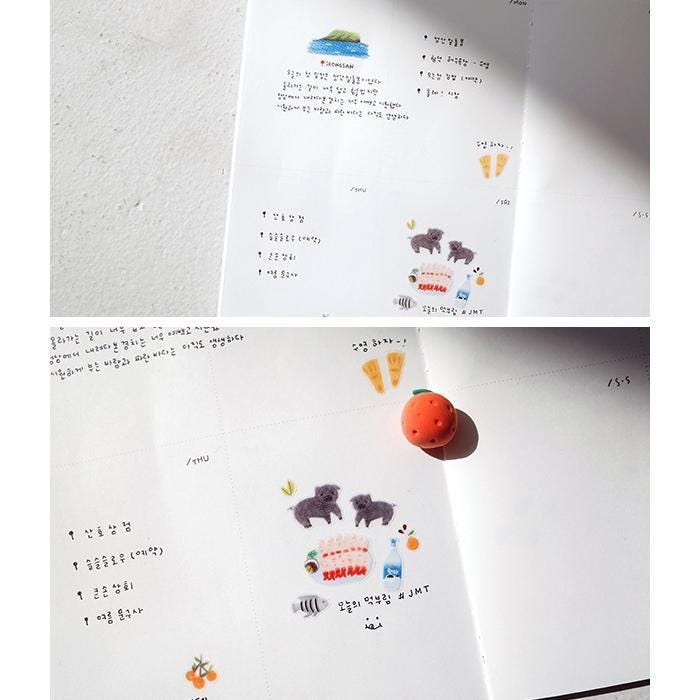 /MON
SEONGSAN
성산일출봉
오늘의 첫 일정은 성산일출봉이었다
올라가는 길이 너무 덥고 힘들었지만
정상에서 내려다본 경치는 너무 예뻤고 시원했다
시원하게 부는 바람과 파란 바다는 아직도 생생하다
수영 하자~!
/THU
/FRI
산호상점
슬슬슬로우 (예약)
큰손상회
여름문구사
오늘의 먹부림 #JMT
/S.S
올라가는 길이 너무
정상에서 내려다본 경치는 너무 예뻤고 시원했다
시원하게 부는 바람과 파란 바다는 아직도 생생하다
수영 하자~!
/S.S
/THU
산호상점
슬슬슬로우 (예약)
큰손상회
여름문구사
오늘의 먹부림 #JMT